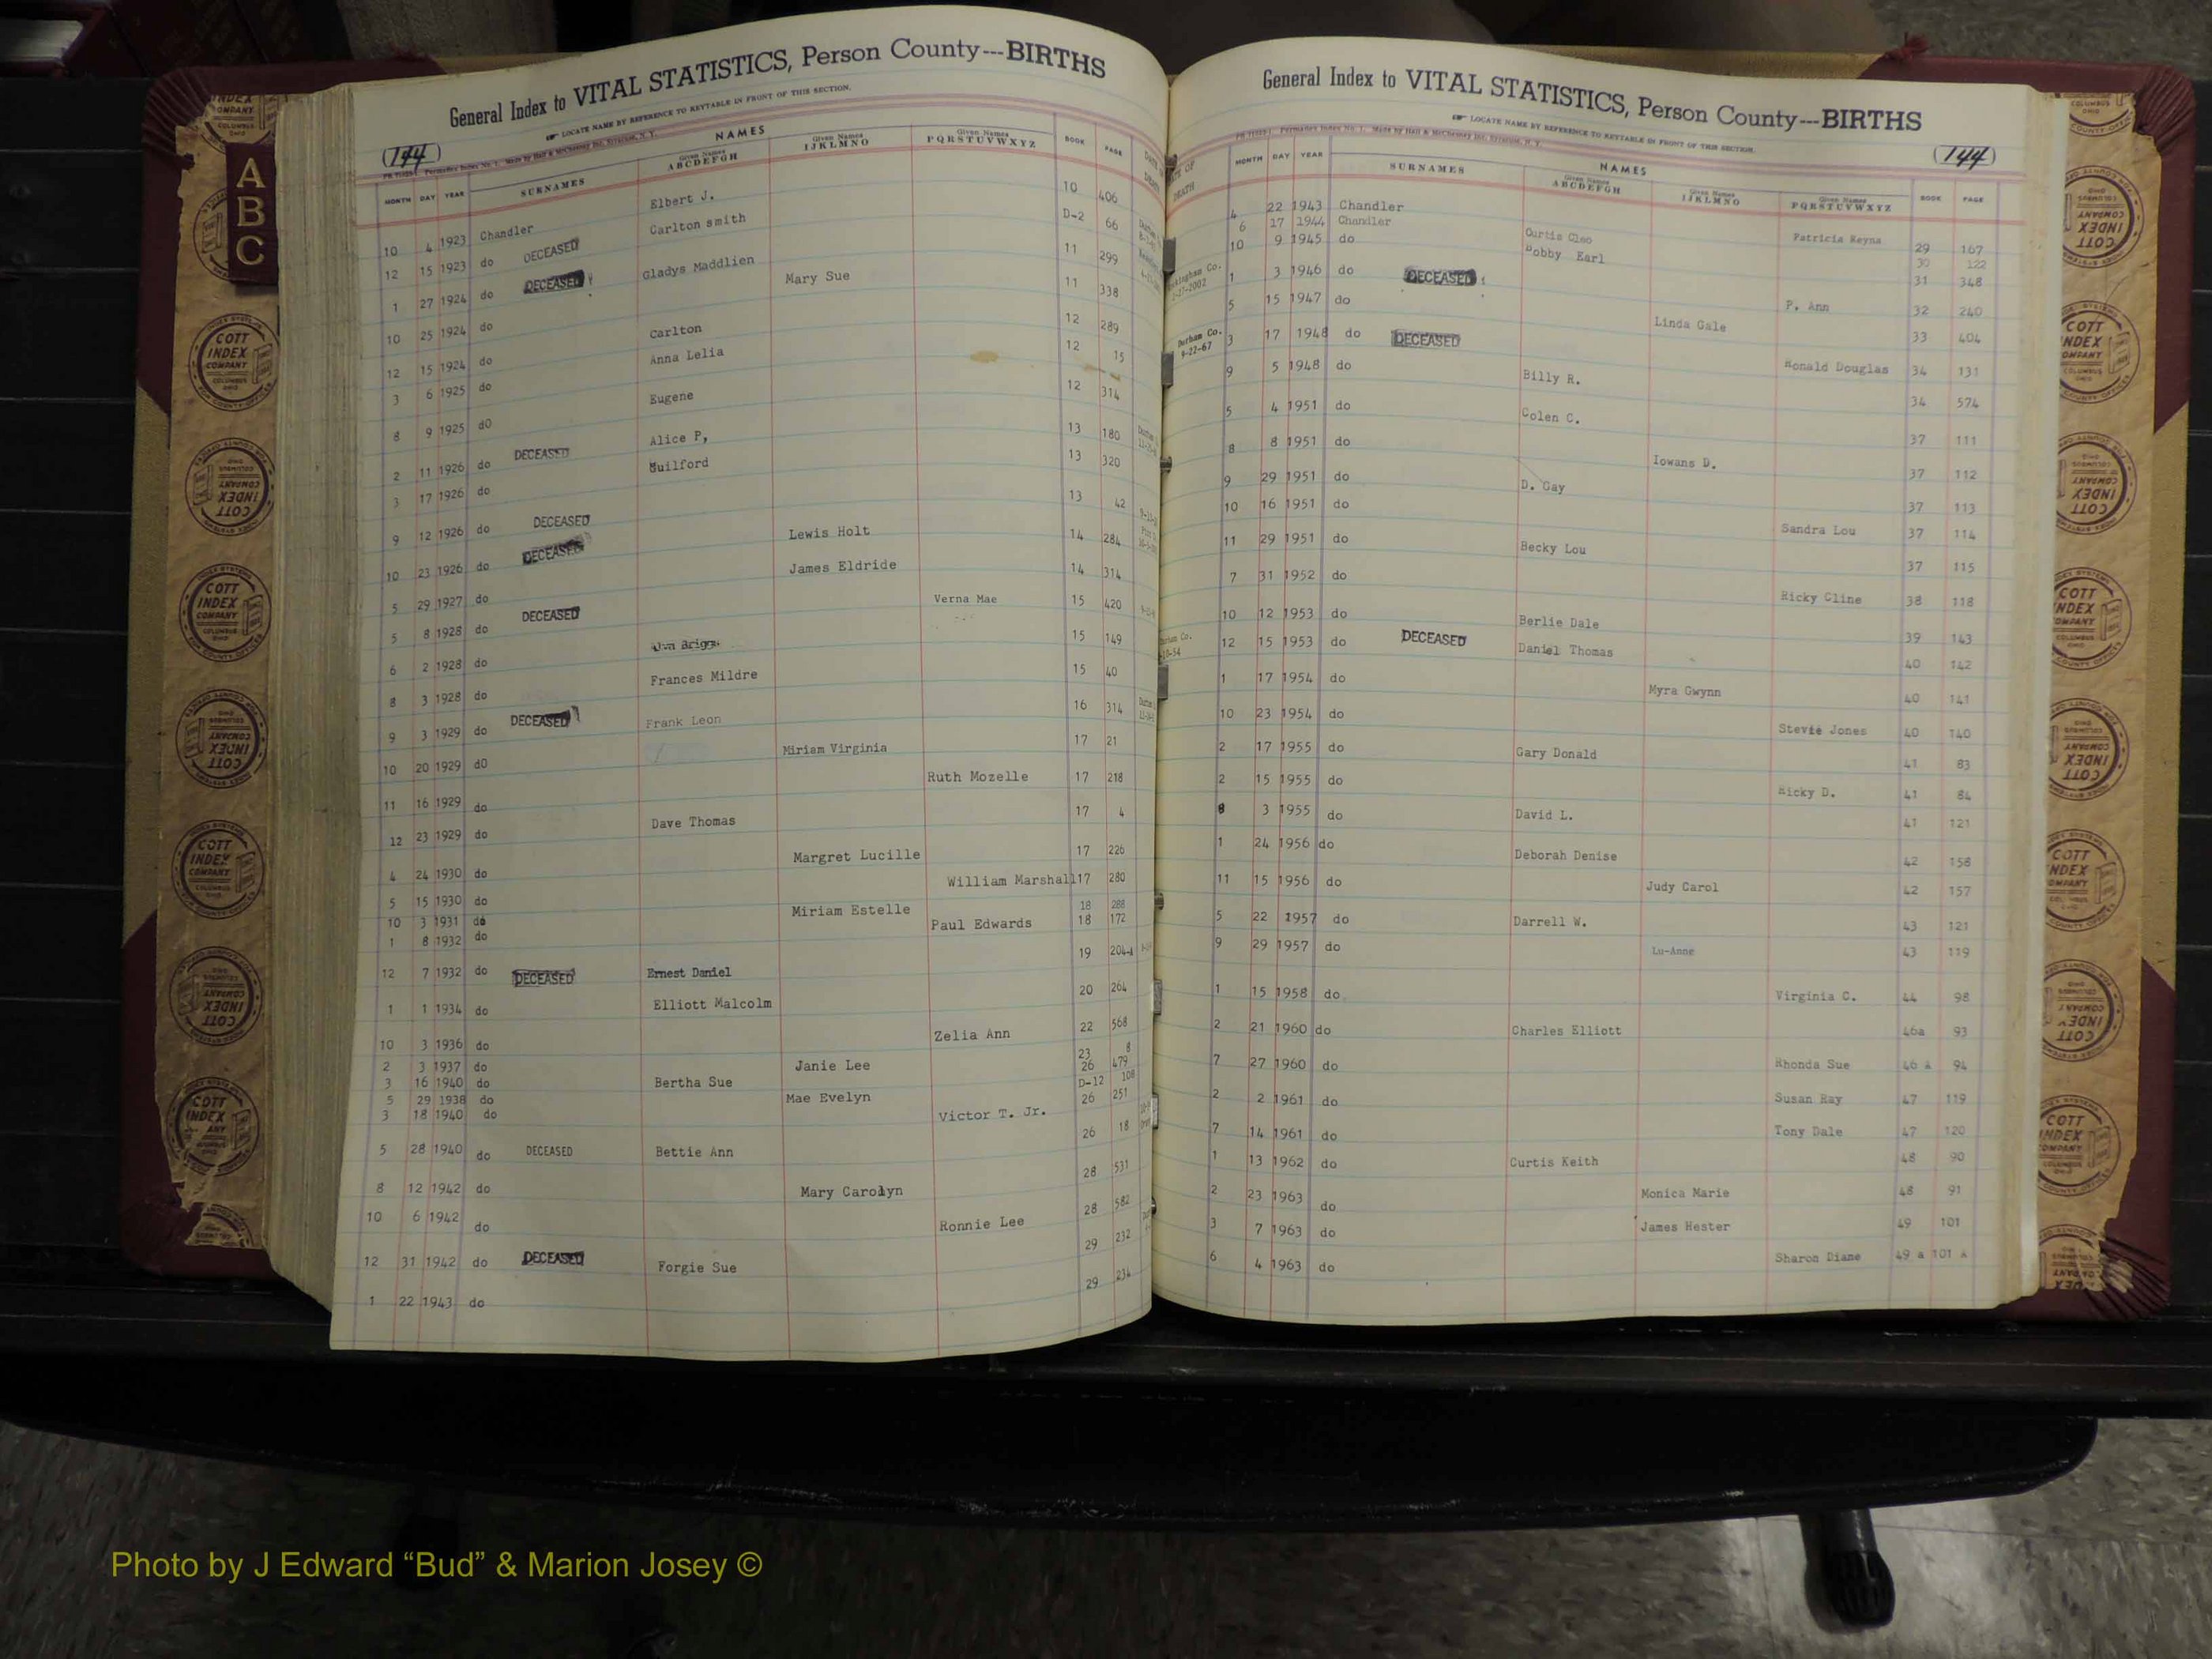 General Index to VITAL STATISTICS, Person County---BIRTHS
LOCATE NAME BY REFERENCE TO KEYTABLE IN FRONT OF THIS SECTION.
(144)
NAMES
MONTH DAY YEAR SURNAMES Given Names ABCDEFGH Given Names IJKLMNO Given Names PQRSTUVWXYZ BOOK PAGE
10 4 1923 Chandler Elbert J. 10 406
12 15 1923 do DECEASED Carlton smith D-2 66
1 27 1924 do DECEASED Gladys Maddlien 11 299
10 25 1924 do Mary Sue 11 338
12 15 1924 do Carlton 12 289
3 6 1925 do Anna Lelia 12 15
8 9 1925 dO Eugene 12 314
2 11 1926 do DECEASED Alice P, 13 180
3 17 1926 do Guilford 13 320
9 12 1926 do DECEASED Lewis Holt 13 42
10 23 1926 do DECEASED James Eldride 14 284
5 29 1927 do Verna Mae 14 314
5 8 1928 do DECEASED 15 420
6 2 1928 do Briggs 15 149
8 3 1928 do Frances Mildre 15 40
9 3 1929 do DECEASED Frank Leon 16 314
10 20 1929 dO Miriam Virginia 17 21
11 16 1929 do Ruth Mozelle 17 218
12 23 1929 do Dave Thomas 17 4
4 24 1930 do Margret Lucille 17 226
5 15 1930 do William Marshall 17 280
10 3 1931 do Miriam Estelle 18 288
1 8 1932 do Paul Edwards 18 172
12 7 1932 do DECEASED Ernest Daniel 19 204-A
1 1 1934 do Elliott Malcolm 20 264
10 3 1936 do Zelia Ann 22 568
2 3 1937 do Janie Lee 23 8
3 16 1940 do Bertha Sue 26 479
5 29 1938 do Mae Evelyn D-12 108
3 18 1940 do Victor T. Jr. 26 251
5 28 1940 do DECEASED Bettie Ann 26 18
8 12 1942 do Mary Carolyn 28 531
10 6 1942 do Ronnie Lee 28 582
12 31 1942 do DECEASED Forgie Sue 29 232
1 22 1943 do 29 234
General Index to VITAL STATISTICS, Person County---BIRTHS
LOCATE NAME BY REFERENCE TO KEYTABLE IN FRONT OF THIS SECTION.
(144)
NAMES
MONTH DAY YEAR SURNAMES Given Names ABCDEFGH Given Names IJKLMNO Given Names PQRSTUVWXYZ BOOK PAGE
4 22 1943 Chandler Patricia Reyna 29 167
6 17 1944 Chandler Curtis Cleo 30 122
10 9 1945 do Bobby Earl 31 348
1 3 1946 do DECEASED P. Ann 32 240
5 15 1947 do Linda Gale 33 404
Durham Co.
9-22-67
3 17 1948 do DECEASED Ronald Douglas 34 131
9 5 1948 do Billy R. 34 574
5 4 1951 do Colen C. 37 111
8 8 1951 do Iowans D. 37 112
9 29 1951 do D. Gay 37 113
10 16 1951 do Sandra Lou 37 114
11 29 1951 do Becky Lou 37 115
7 31 1952 do Ricky Cline 38 118
10 12 1953 do Berlie Dale 39 143
12 15 1953 do DECEASED Daniel Thomas 40 142
1 17 1954 do Myra Gwynn 40 141
10 23 1954 do Stevie Jones 40 140
2 17 1955 do Gary Donald 41 83
2 15 1955 do Ricky D. 41 84
8 3 1955 do David L. 41 121
1 24 1956 do Deborah Denise 42 158
11 15 1956 do Judy Carol 42 157
5 22 1957 do Darrell W. 43 121
9 29 1957 do Lu-Anne 43 119
1 15 1958 do Virginia C. 44 98
2 21 1960 do Charles Elliott 46a 93
7 27 1960 do Rhonda Sue 46 a 94
2 2 1961 do Susan Ray 47 119
7 14 1961 do Tony Dale 47 120
1 13 1962 do Curtis Keith 48 90
2 23 1963 do Monica Marie 48 91
3 7 1963 do James Hester 49 101
6 4 1963 do Sharon Diane 49 a 101 a
A
B
C
COTT INDEX COMPANY COLUMBUS OHIO
Photo by J Edward “Bud” & Marion Josey ©